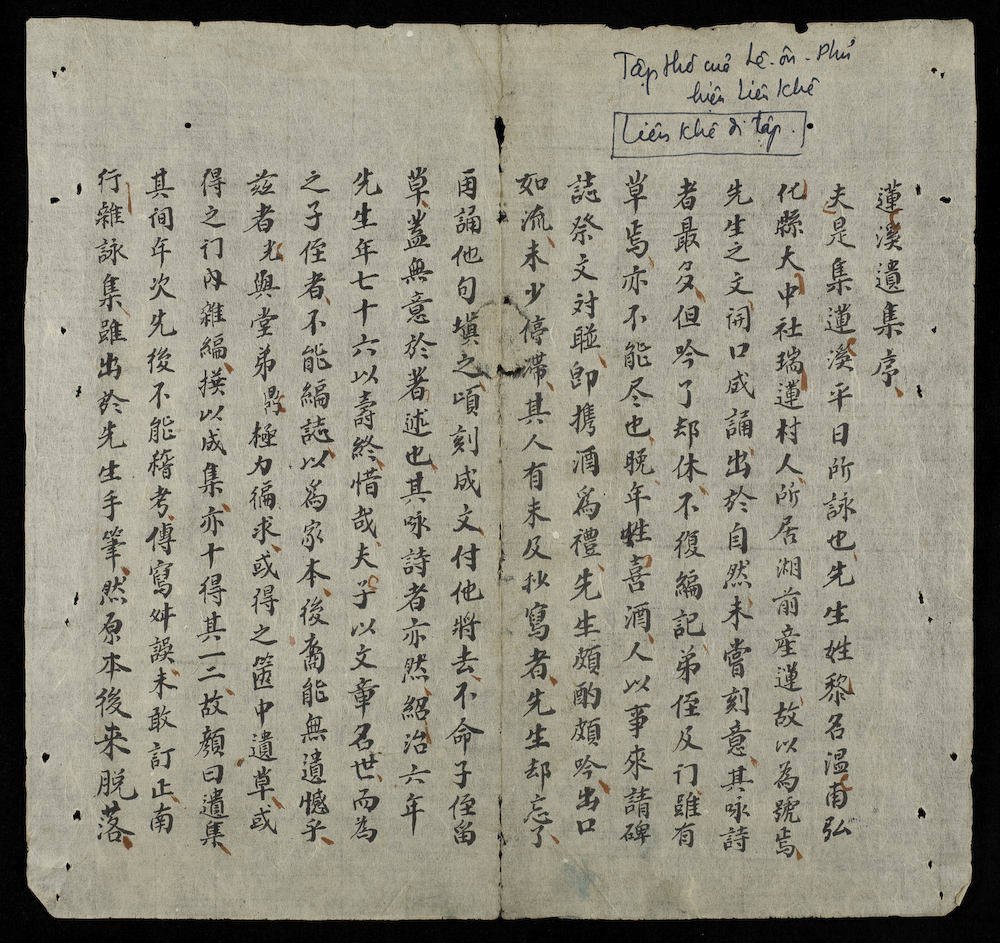 Tập thơ của Lê-ôn-Phủ
hiệu Liên Khê
Liên Khê di tập.
蓮溪遺集序
夫是集蓮溪平日所詠也先生姓黎名溫南弘
化縣大中社瑞蓮村人所居湖前産蓮故以為號焉
先生之文開口成誦出於自然未嘗刻意其咏詩
者最多但吟了却休不復編記弟侄及门雖有
草焉亦不能尽也晚年性喜酒人以事來請碑
誌祭文対聯即携酒爲禮先生頗酌頗吟出口
如流未少停滯其人有未及抄寫者先生却忘了
再誦他句塡之頃刻成文付他將去不命子侄留
草蓋無意於著述也其咏詩者亦然紹治六年
先生年七十六以壽終惜哉夫子以文章名世而為
之子侄者不能編誌以爲家本後裔能無遺憾乎
茲者光與堂弟鼎極力徧求或得之篋中遺草或
得之门内雜編摸以成集亦十得其一二故顏曰遺集
其间年次先後不能稽考傳寫舛誤未敢訂正南
行雜詠集雖出於先生手筆然原本後来脱落